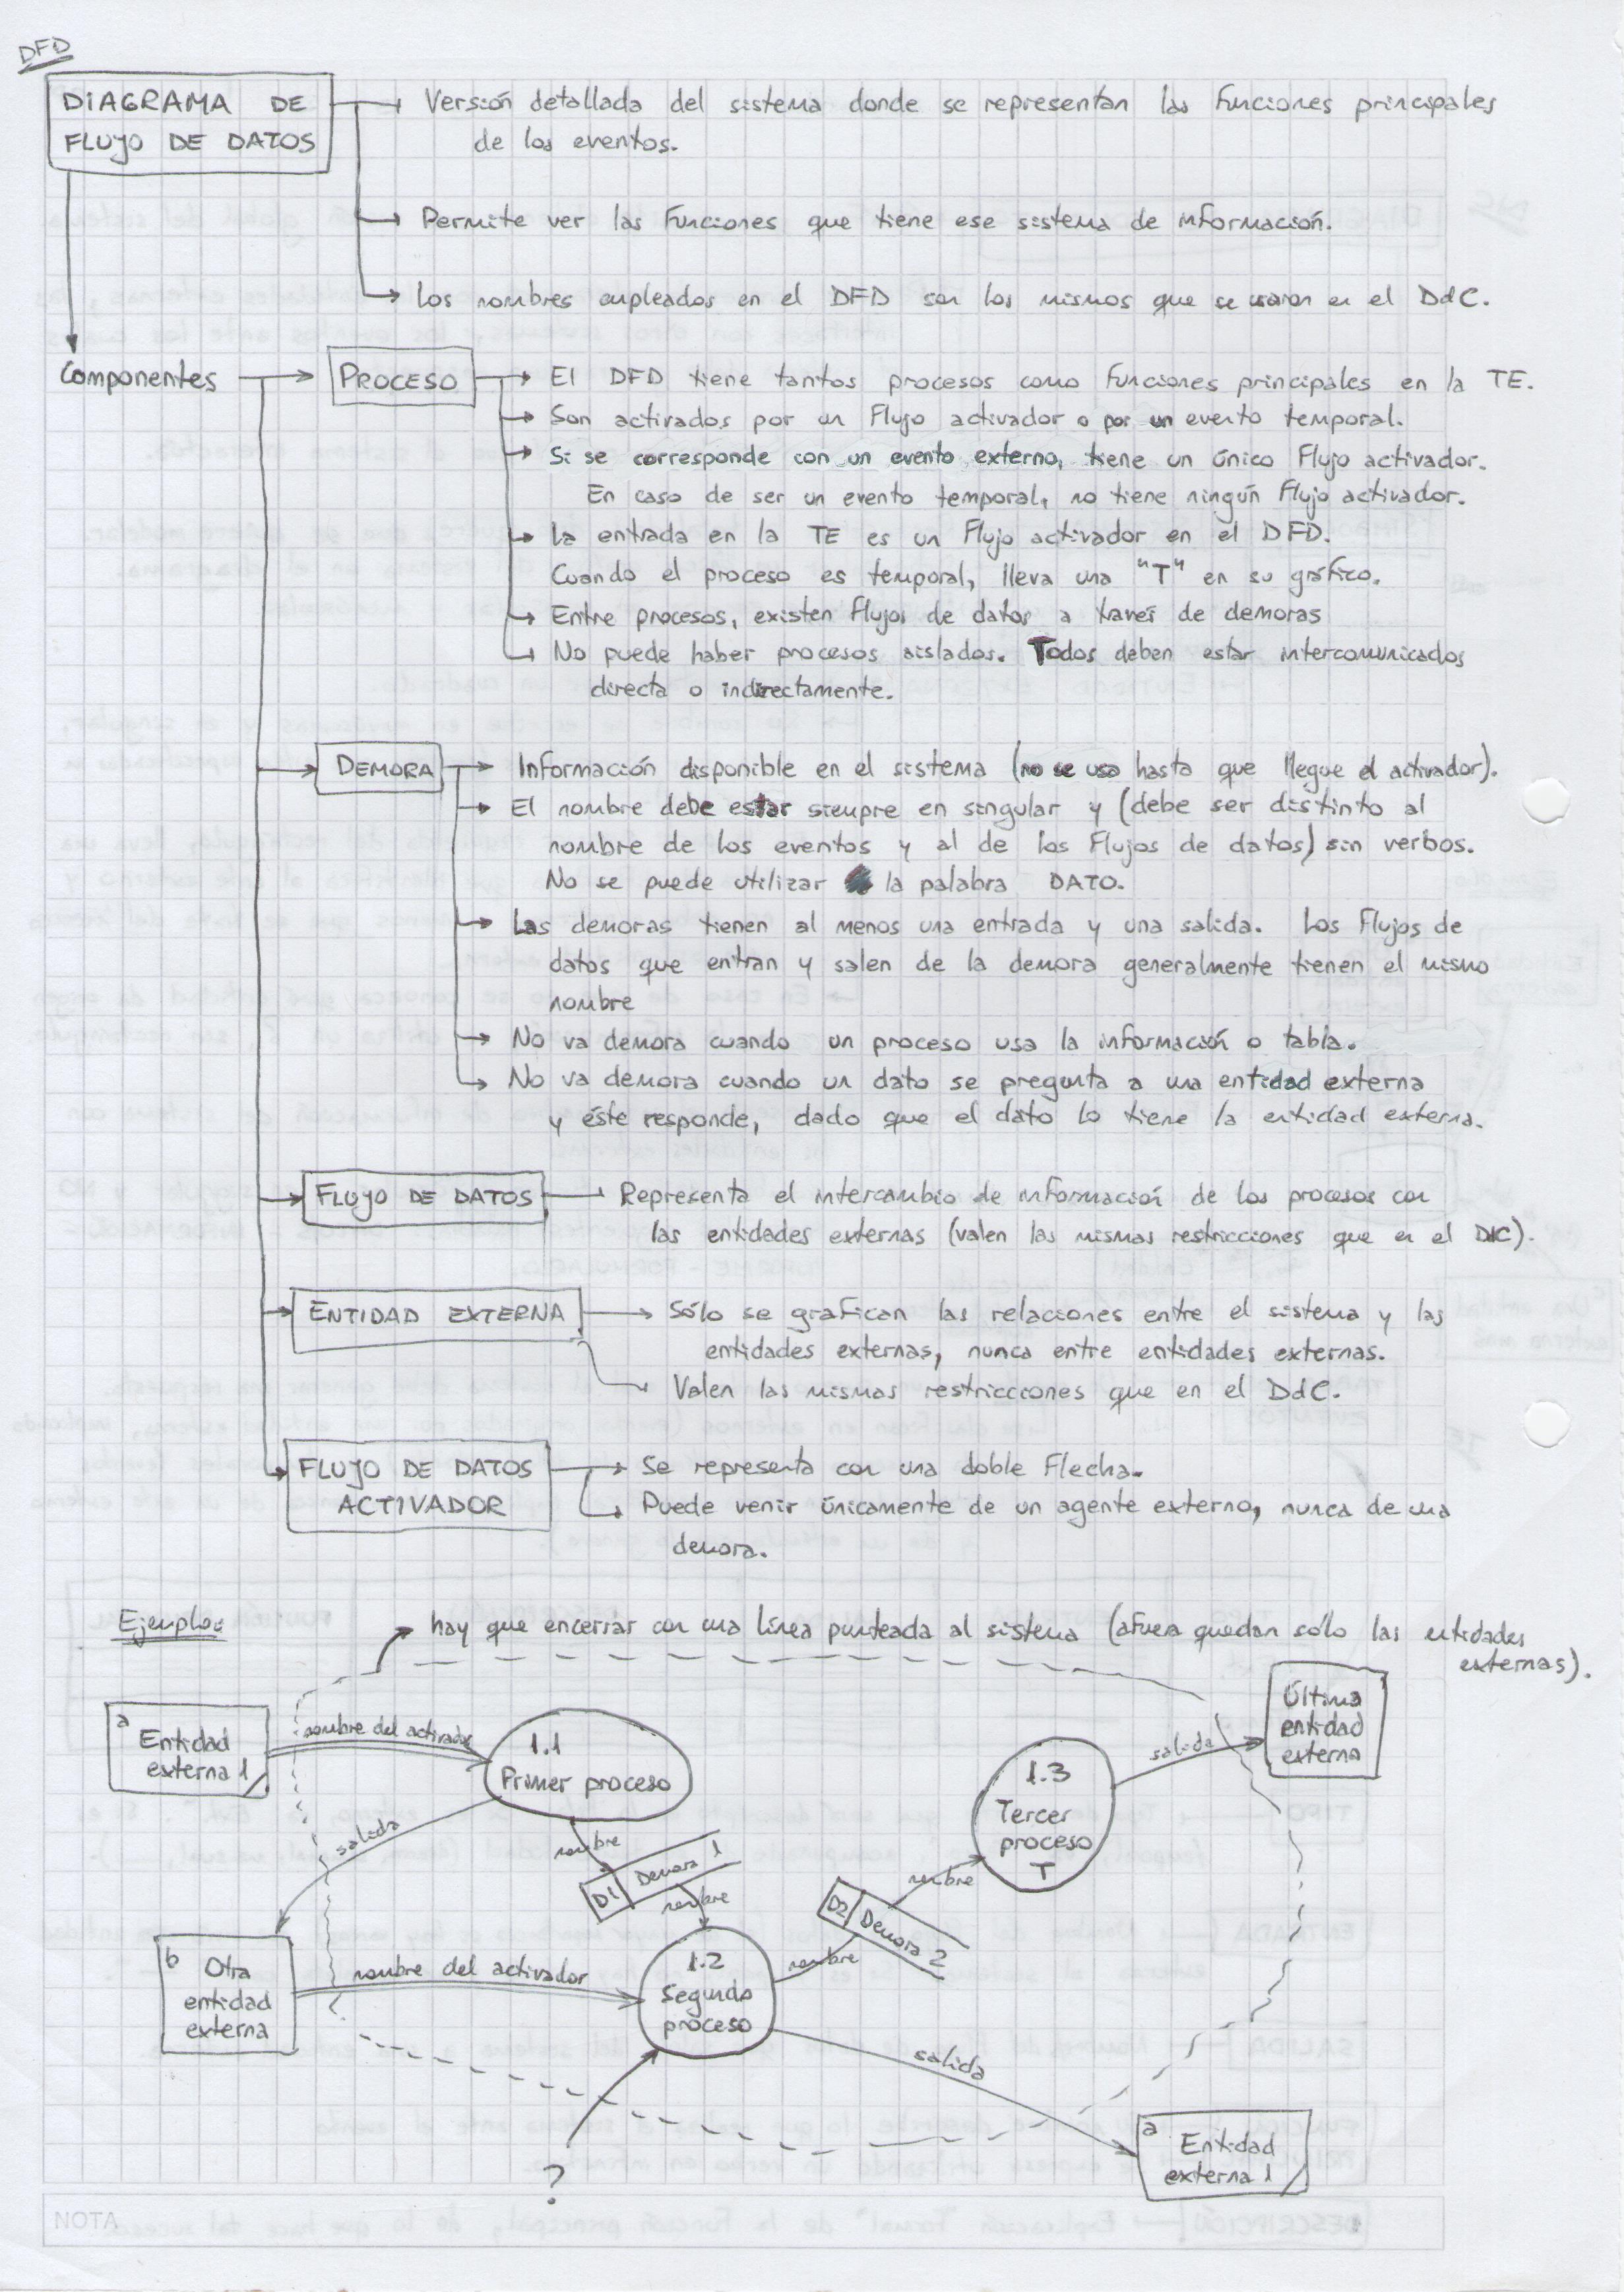 DFD
DIAGRAMA DE
FLUJO DE DATOS
Versión detallada del sistema donde se representan las funciones principales
de los eventos.
Permite ver las funciones que tiene ese sistema de información.
Los nombres empleados en el DFD son los mismos que se usaron en el DdC.
Componentes
PROCESO
El DFD tiene tantos procesos como funciones principales en la TE.
Son activados por un flujo activador o por un evento temporal.
Si se corresponde con un evento externo, tiene un único flujo activador.
En caso de ser un evento temporal, no tiene ningún flujo activador.
La entrada en la TE es un flujo activador en el DFD.
Cuando el proceso es temporal, lleva una "T" en su gráfico.
Entre procesos, existen flujos de datos a través de demoras
No puede haber procesos aislados. Todos deben estar intercomunicados
directa o indirectamente.
DEMORA
Información disponible en el sistema (no se usa hasta que llegue el activador).
El nombre debe estar siempre en singular y (debe ser distinto al
nombre de los eventos y al de los flujos de datos) sin verbos.
No se puede utilizar la palabra DATO.
Las demoras tienen al menos una entrada y una salida. Los flujos de
datos que entran y salen de la demora generalmente tienen el mismo
nombre
No va demora cuando un proceso usa la información o tabla.
No va demora cuando un dato se pregunta a una entidad externa
y éste responde, dado que el dato lo tiene la entidad externa.
FLUJO DE DATOS
Representa el intercambio de información de los procesos con
las entidades externas (valen las mismas restricciones que en el DdC).
ENTIDAD EXTERNA
Sólo se grafican las relaciones entre el sistema y las
entidades externas, nunca entre entidades externas.
Valen las mismas restricciones que en el DdC.
FLUJO DE DATOS
ACTIVADOR
Se representa con una doble flecha.
Puede venir únicamente de un agente externo, nunca de una
demora.
Ejemplo:
hay que encerrar con una línea punteada al sistema (afuera quedan sólo las entidades
externas).
a
Entidad
externa 1
nombre del activador
1.1
Primer proceso
salida
nombre
D1 Demora 1
nombre
b
Otra
entidad
externa
nombre del activador
1.2
Segundo
proceso
nombre
D2 Demora 2
nombre
1.3
Tercer
proceso
T
salida
Última
entidad
externa
salida
a
Entidad
externa 1
?
NOTA